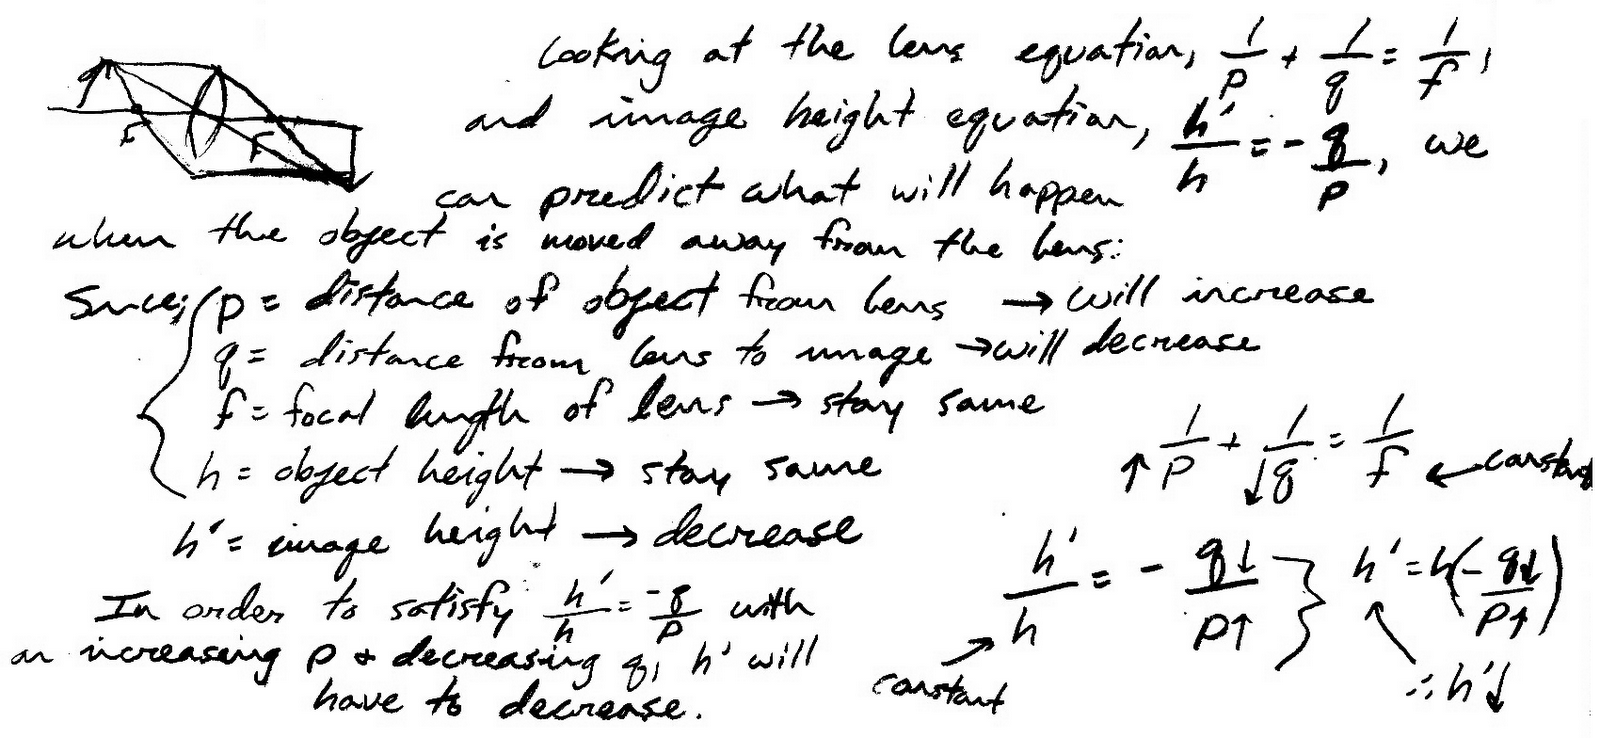 F
F
Looking at the lens equation, 1/p + 1/q = 1/f,
and image height equation, h'/h = - q/p, we
can predict what will happen
when the object is moved away from the lens:
Since; p = distance of object from lens → will increase
q = distance from lens to image → will decrease
f = focal length of lens → stay same
h = object height → stay same
h' = image height → decrease
In order to satisfy h'/h = -q/p with
an increasing p & decreasing q, h' will
have to decrease.
↑ 1/p + ↓ 1/q = 1/f ← constant
h'/h = - q↓/p↑ } h' = h(- q↓/p↑)
constant
∴ h'↓